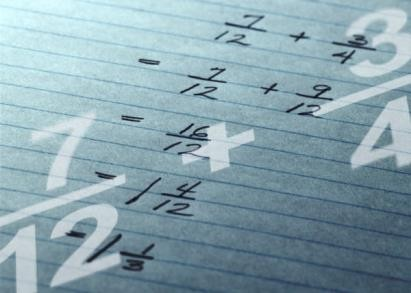 7/12 + 3/4
= 7/12 + 9/12
= 16/12
= 1 4/12
= 1 1/3
7/12 + 3/4